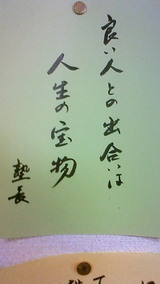 良い人との出合いは
人生の宝物
塾長